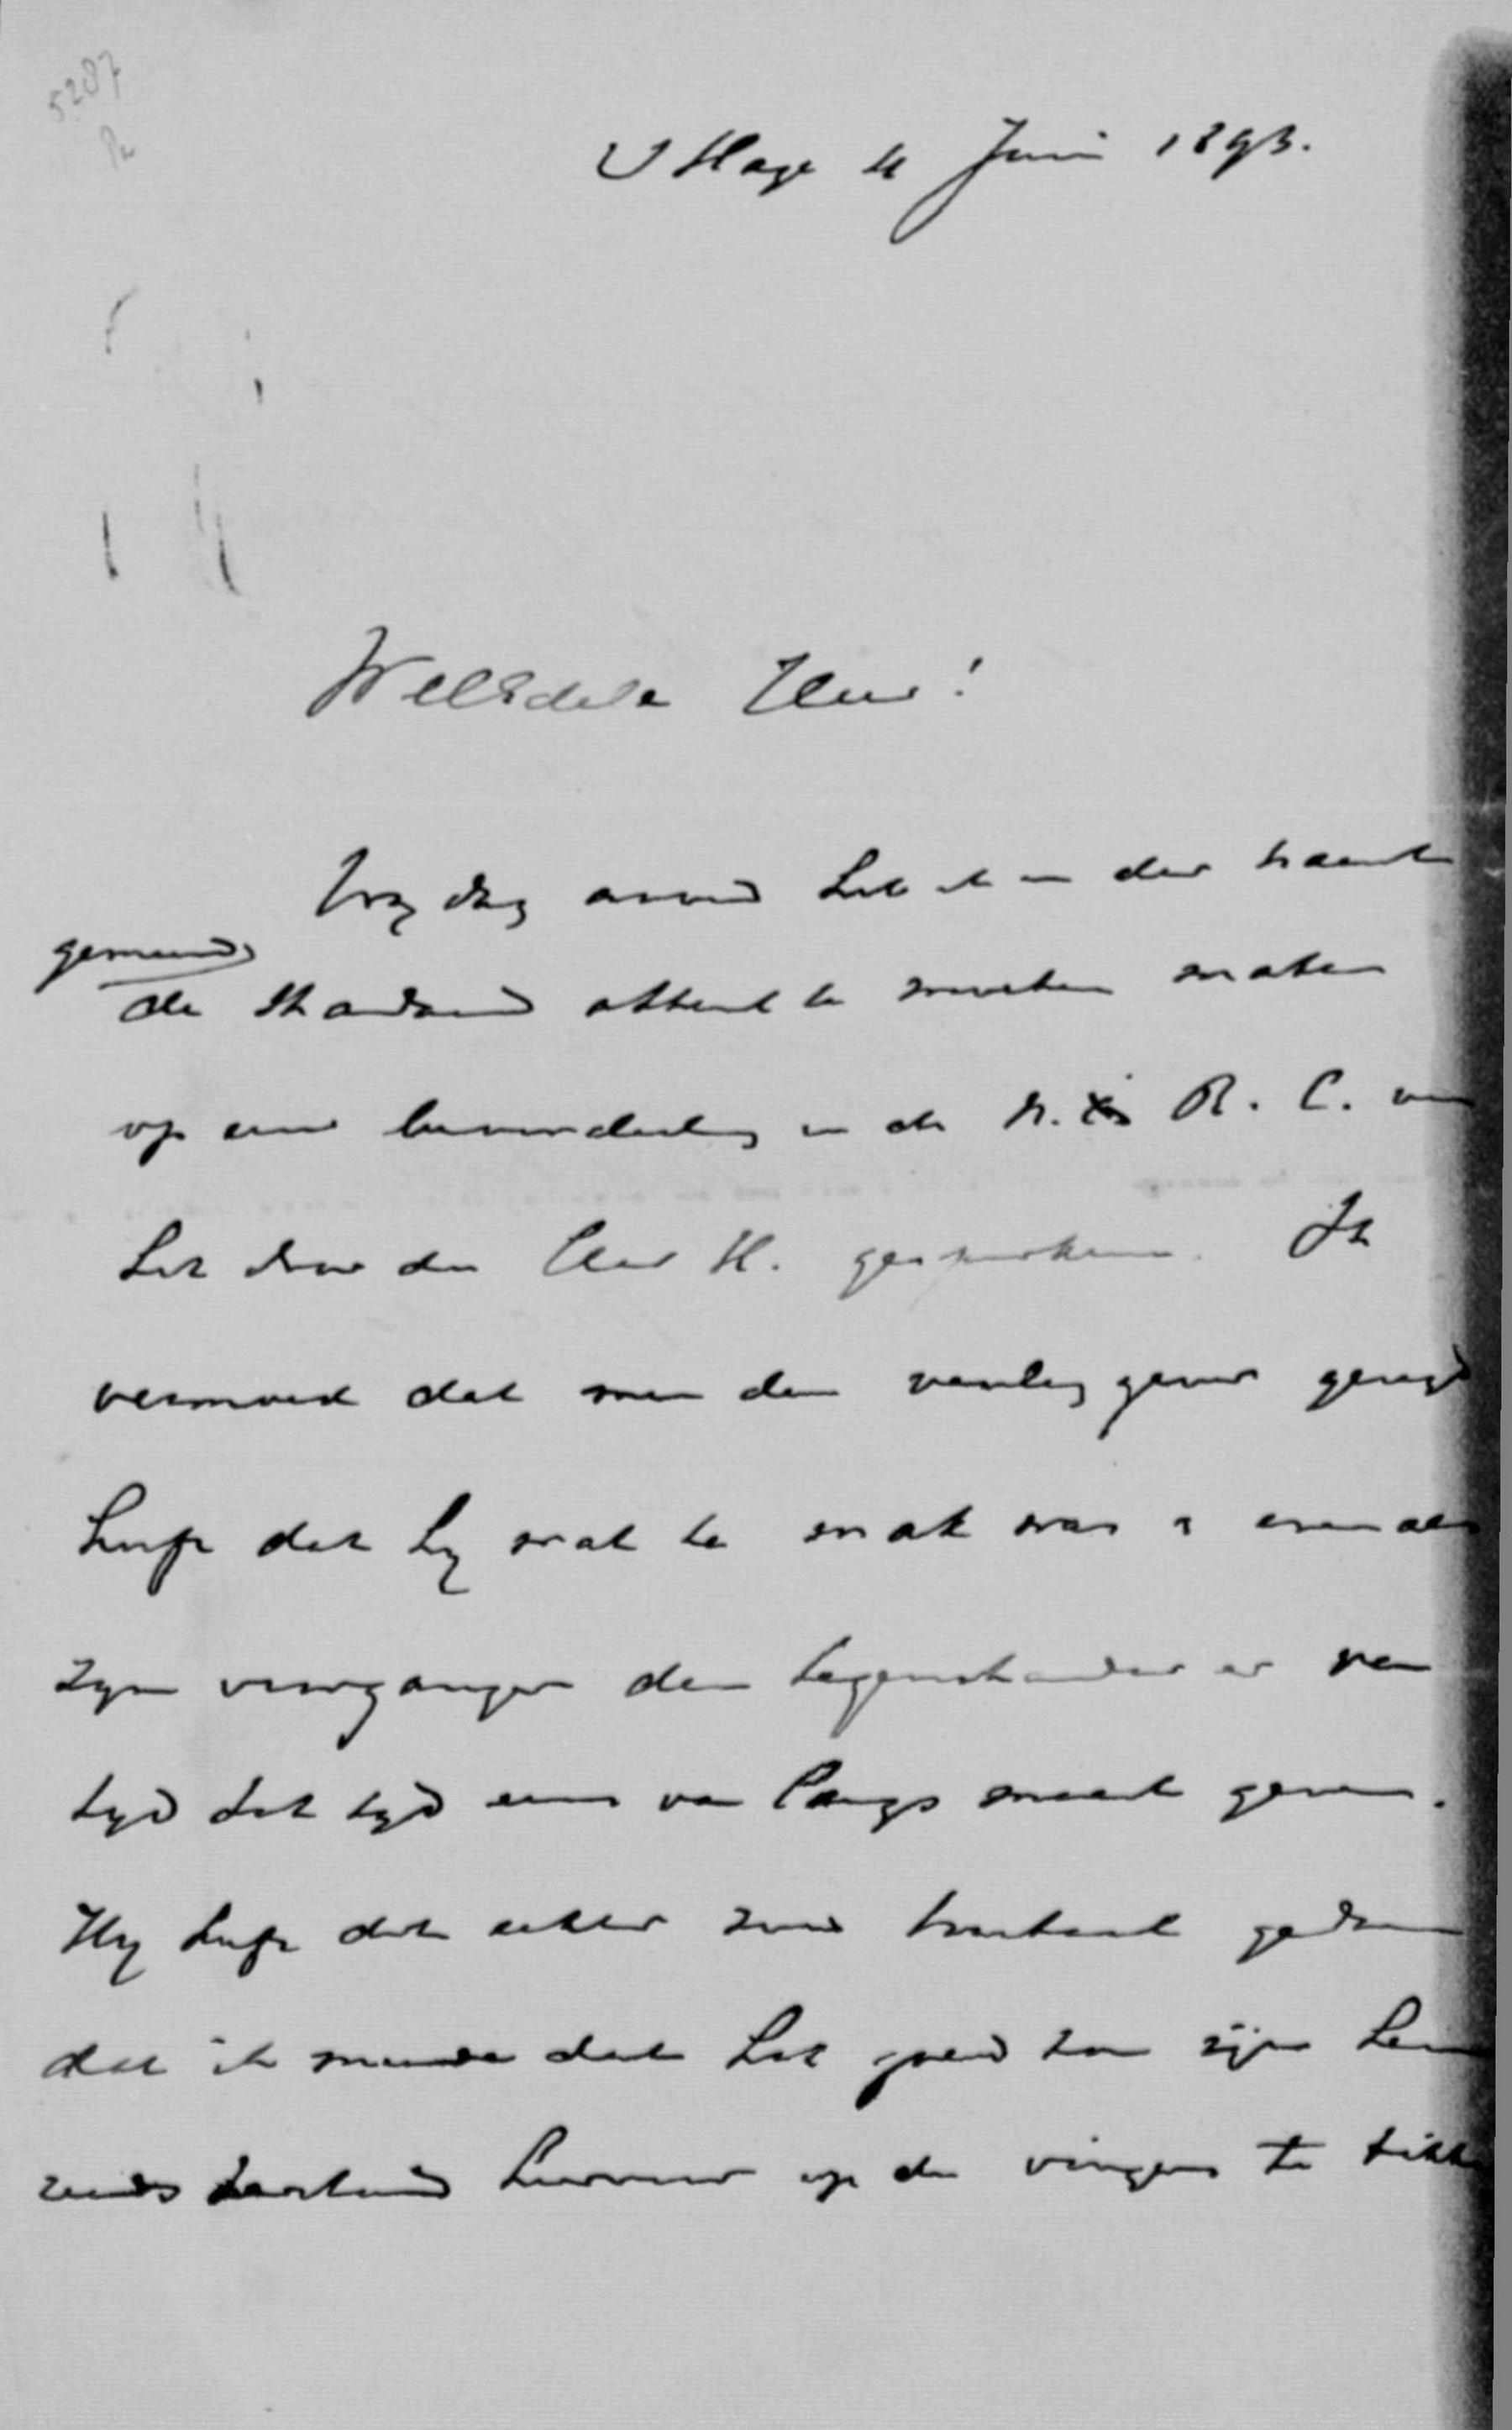 5287
's Hage 4 Juni 1893.
WelEdele Heer!
Vrydag avond heb ik in der haast
gemeend
de Standaard attent te moeten maken
op eene beoordeeling in de N. R. C. van
het door den Heer H. gesprokene. Ik
vermoed dat men den verslaggever gezegd
heeft dat hy wat te mak was & evenals
zyn voorganger den tegenstander er van
tyd tot tyd eens van langs moest geven.
Hy heeft dit echter zoo brutaal gedaan
dat ik meende dat het goed kon zijn hem
eens op de vingers te tikken